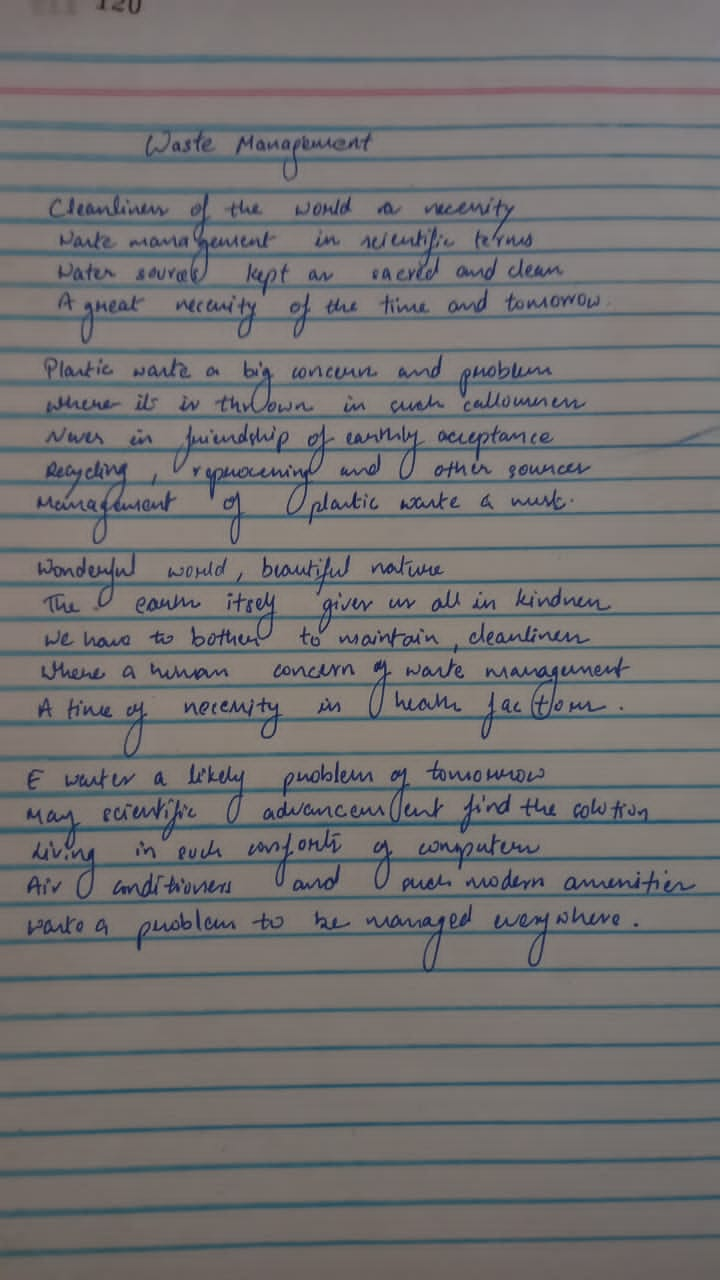 120
Waste Management
Cleanliness of the world a necessity
Waste management in scientific terms
Water sources kept as sacred and clean
A great necessity of the time and tomorrow.
Plastic waste a big concern and problem
Where its is thrown in such callousness
Never in friendship of earthly acceptance
Recycling, reprocessing and other sources
Management of plastic waste a must.
Wonderful world, beautiful nature
The earth itself gives us all in kindness
We have to bother to maintain, cleanliness
Where a human concern of waste management
A time of necessity in health factors.
E wastes a likely problem of tomorrow
May scientific advancement find the solution
Living in such comforts of computers
Air conditioners and such modern amenities
Waste a problem to be managed everywhere.